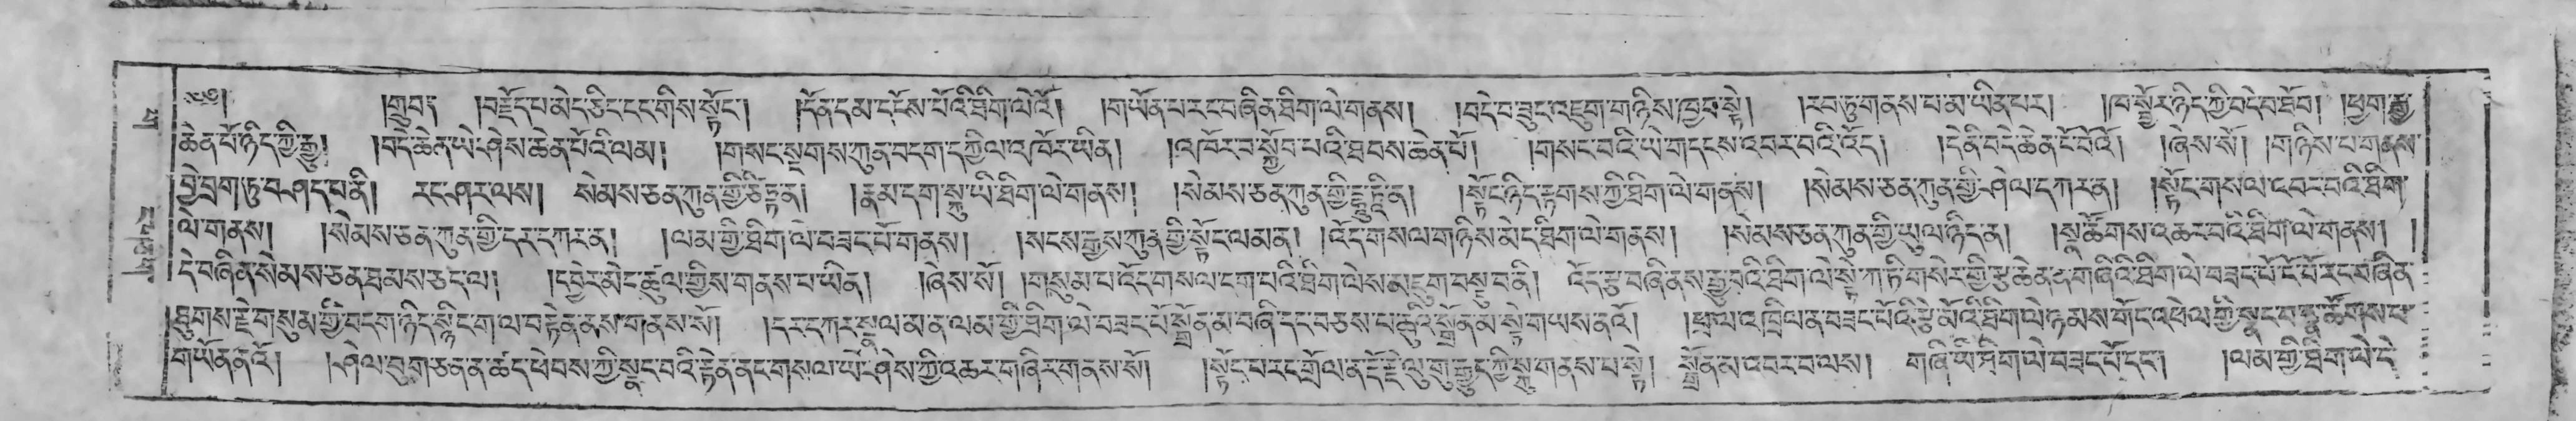 ༄༅། །གྲུབ༔ །བརྗོད་པ་མེད་ཅིང་ངང་གིས་སྟོང་། །དོན་དམ་དངོས་པོའི་ཐིག་ལེའོ། །གཡོན་པ་རང་བཞིན་ཐིག་ལེ་གནས། །བདེ་བ་ཟུང་འཇུག་གཉིས་ཁྱབ་སྟེ། །རབ་ཏུ་གནས་པ་མ་ཡིན་པར། །ཁ་སྦྱོར་ཉིད་ཀྱི་བདེ་བ་ཐོབ། །ཕྱག་རྒྱ་
ཆེན་པོ་ཉིད་ཀྱི་རྒྱུ། །བདེ་ཆེན་ཡེ་ཤེས་ཆེན་པོའི་ལམ། །གསང་སྔགས་ཀུན་བདག་དཀྱིལ་འཁོར་ཡིན། །འཁོར་བ་སྐྱོབ་པའི་ཐབས་ཆེན་པོ། །གསང་བའི་ཡེ་གདངས་འབར་བའི་འོད། །དེ་ནི་བདེ་ཆེན་ངོ་བོའོ། །ཞེས་སོ། །གཉིས་པ་གནས་
བྱེ་བྲག་ཏུ་བཤད་པ་ནི། རང་ཤར་ལས། སེམས་ཅན་ཀུན་གྱི་ཙིཏྟ་ན། །རྣམ་དག་སྐུ་ཡི་ཐིག་ལེ་གནས། །སེམས་ཅན་ཀུན་གྱི་ །སྟོང་ཉིད་རྟགས་ཀྱི་ཐིག་ལེ་གནས། །སེམས་ཅན་ཀུན་གྱི་ཤེལ་དཀར་ན། །སྟོང་གསལ་འབར་བའི་ཐིག་
ལེ་གནས། །སེམས་ཅན་ཀུན་གྱི་དར་དཀར་ན། །ལམ་གྱི་ཐིག་ལེ་བཟང་པོ་གནས། །སངས་རྒྱས་ཀུན་གྱི་སྟོང་ལམ་ན། །འོད་གསལ་གཉིས་མེད་ཐིག་ལེ་གནས། །སེམས་ཅན་ཀུན་གྱི་ཡུལ་ཉིད་ན། །སྣ་ཚོགས་འཆར་བའི་ཐིག་ལེ་གནས། །
དེ་བཞིན་སེམས་ཅན་ཐམས་ཅད་ལ། །དབྱེར་མེད་ཚུལ་གྱིས་གནས་པ་ཡིན། །ཞེས་སོ། །གསུམ་པ་འོད་གསལ་དག་པའི་ཐིག་ལེས་མཇུག་བསྡུ་བ་ནི། འོད་ལྔ་བཞིན་ས་རྒྱུ་བའི་ཐིག་ལེ་སྟེ་ཀ་ཏི་གསེར་གྱི་རྩ་ཆེན་ན་གཞིའི་ཐིག་ལེ་བཟང་པོ་ངོ་བོ་རང་བཞིན་
ཐུགས་རྗེ་གསུམ་གྱི་བདག་ཉིད་སྙིང་ག་ལ་བརྟེན་ནས་གནས་སོ། །དར་དཀར་སྣལ་མ་ན་ལམ་གྱི་ཐིག་ལེ་བཟང་པོ་སྒྲོན་མ་བཞི་དང་བཅས་པ་ སྒྲོན་མ་སྟེ་གཡས་ནའོ། །ཕྲ་ལ་འཁྲིལ་ན་བཟང་པོའི་རྩེ་མོའི་ཐིག་ལེ་ཉམས་གོང་འཕེལ་གྱི་སྣང་བ་སྣ་ཚོགས་པ་
གཡོན་ནའོ། །ཤེལ་བུག་ཅན་ན་ཚད་ཕེབས་ཀྱི་སྣང་བའི་རྟེན་ནང་གསལ་ཡེ་ཤེས་ཀྱི་འཆར་གཞིར་གནས་སོ། །སྟོང་པ་རང་གྲོལ་ན་རྡོ་རྗེ་ལུ་གུ་རྒྱུད་ཀྱི་སྐུ་གནས་པ་སྟེ། སྒྲོན་མ་འབར་བ་ལས། གཞི་ཡི་ཐིག་ལེ་བཟང་པོ་དང་། །ལམ་གྱི་ཐིག་ལེ་དེ་